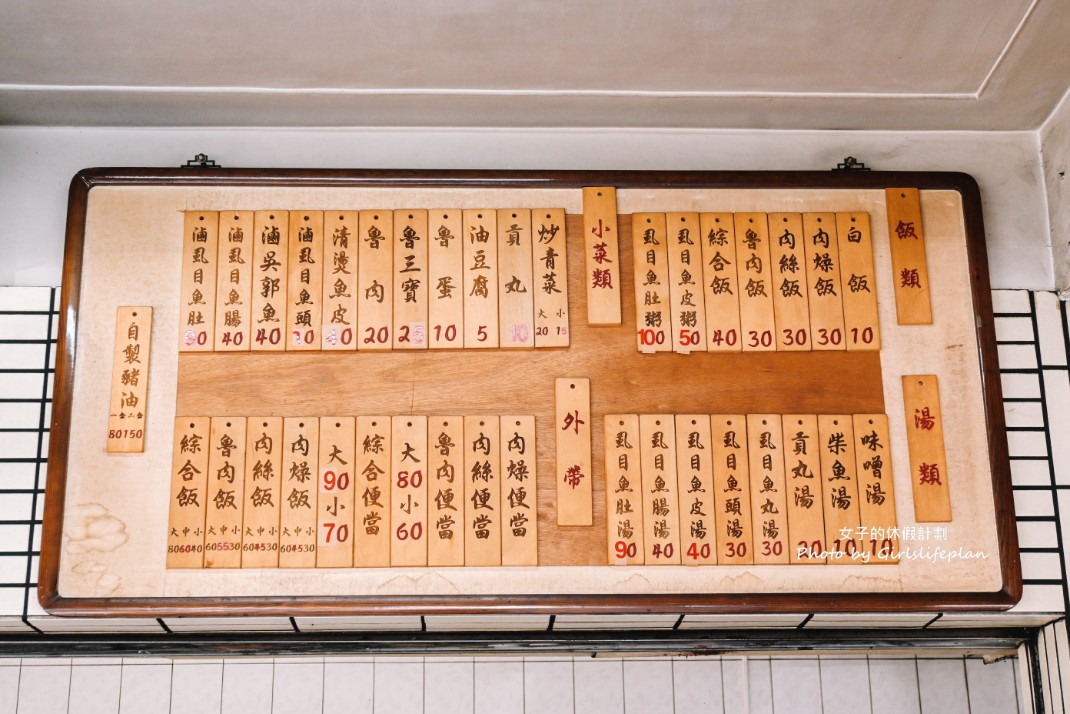 飯類
白飯 10
肉燥飯 30
肉絲飯 30
魯肉飯 30
綜合飯 40
虱目魚皮粥 50
虱目魚肚粥 100
小菜類
炒青菜 大20 小15
貢丸 10
油豆腐 5
魯蛋 10
魯三寶 25
魯肉 20
清燙魚皮 40
滷虱目魚頭 30
滷吳郭魚 40
滷虱目魚腸 40
滷虱目魚肚 90
湯類
味噌湯 10
柴魚湯 10
貢丸湯 20
虱目魚丸湯 30
虱目魚頭湯 30
虱目魚皮湯 40
虱目魚腸湯 40
虱目魚肚湯 90
外帶
肉燥便當
肉絲便當
魯肉便當
大80小60
綜合便當
大90小70
肉燥飯 大中小 604530
肉絲飯 大中小 604530
魯肉飯 大中小 605530
綜合飯 大中小 806040
自製豬油 一盒二盒 80150
女子的休假計劃
Photo by Girlslifeplan